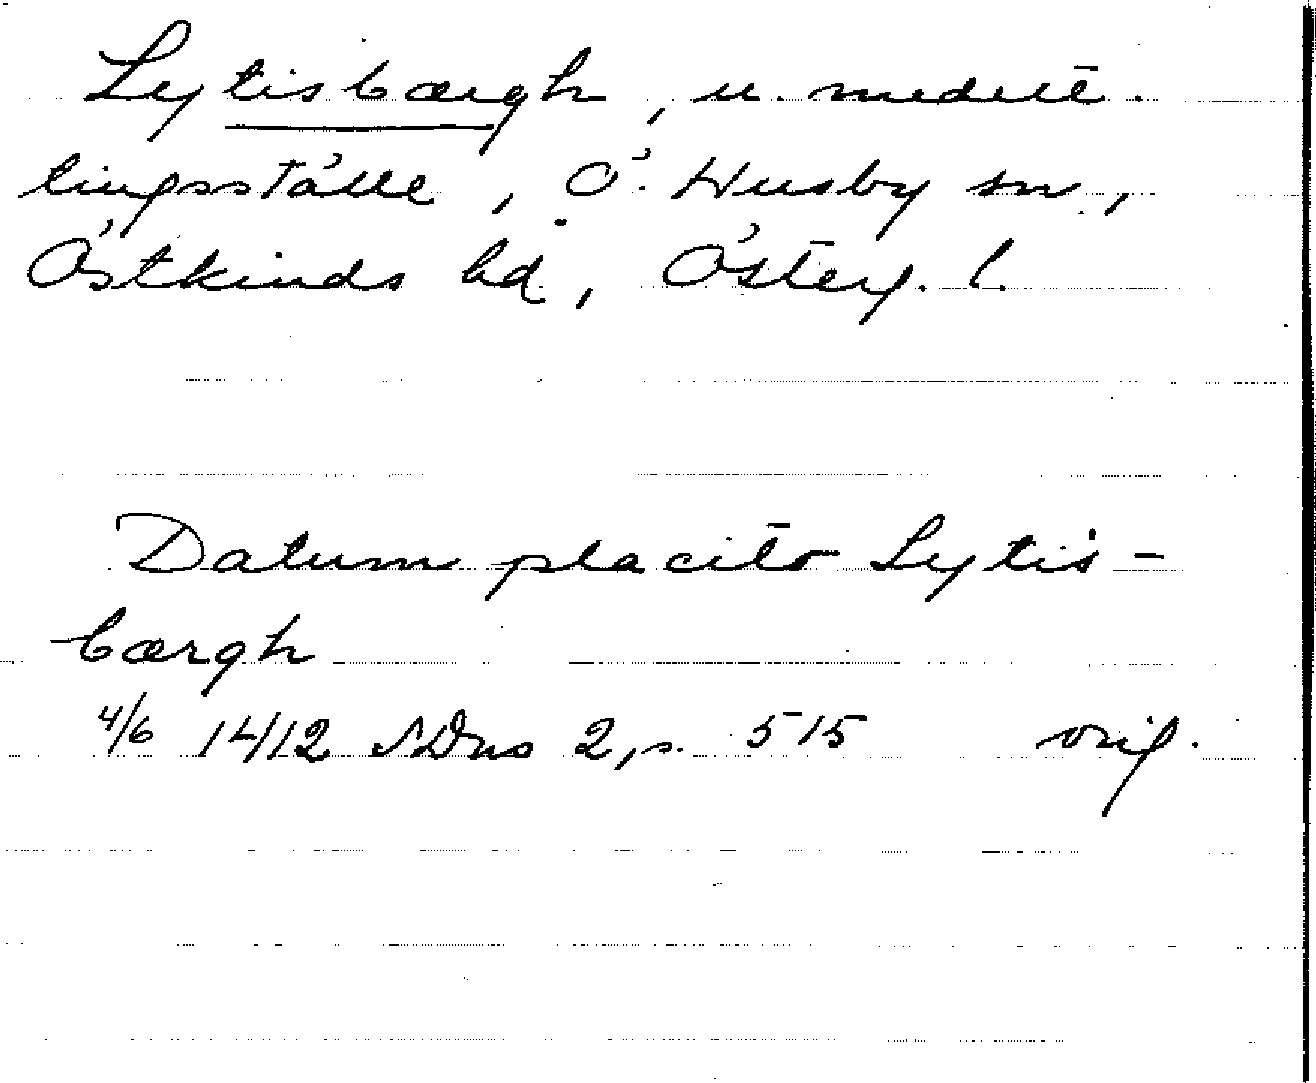 Lytisbærgh, u. medelt.
tingsställe, Ö. Husby sn,
Östkinds hd, Österg. l.
Datum placito Lytis-
bærgh
4/6 1412 SDns 2, s. 515 orig.